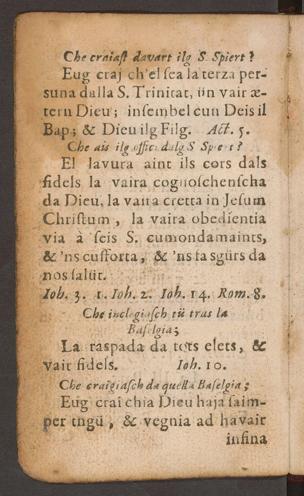 Che craiast davart ilg S. Spiert ?
Eug craj ch'el sea la terza per-
suna dalla S. Trinitat, ün vair æ-
tern Dieu ; insembel cun Deis il
Bap ; & Dieu ilg Filg. Act. 5.
Che ais ilg offici dalg S Spiert ?
El lavura aint ils cors dals
fidels la vaira cognoschenscha
da Dieu, la vaira cretta in Jesum
Christum , la vaira obedientia
via à seis S. cumondamaints,
& 'ns cufforta, & 'ns fa sgürs da
nos salüt.
Ioh. 3. 1. Ioh. 2. Ioh. 14. Rom. 8.
Che inclegiasch tü tras la
Baselgia ;
La raspada da tots elets, &
vair fidels. Ioh. 10.
Che craigiasch da quella Baselgia ;
Eug crai chia Dieu haja saim-
per tngü , & vegnia ad havair
infina